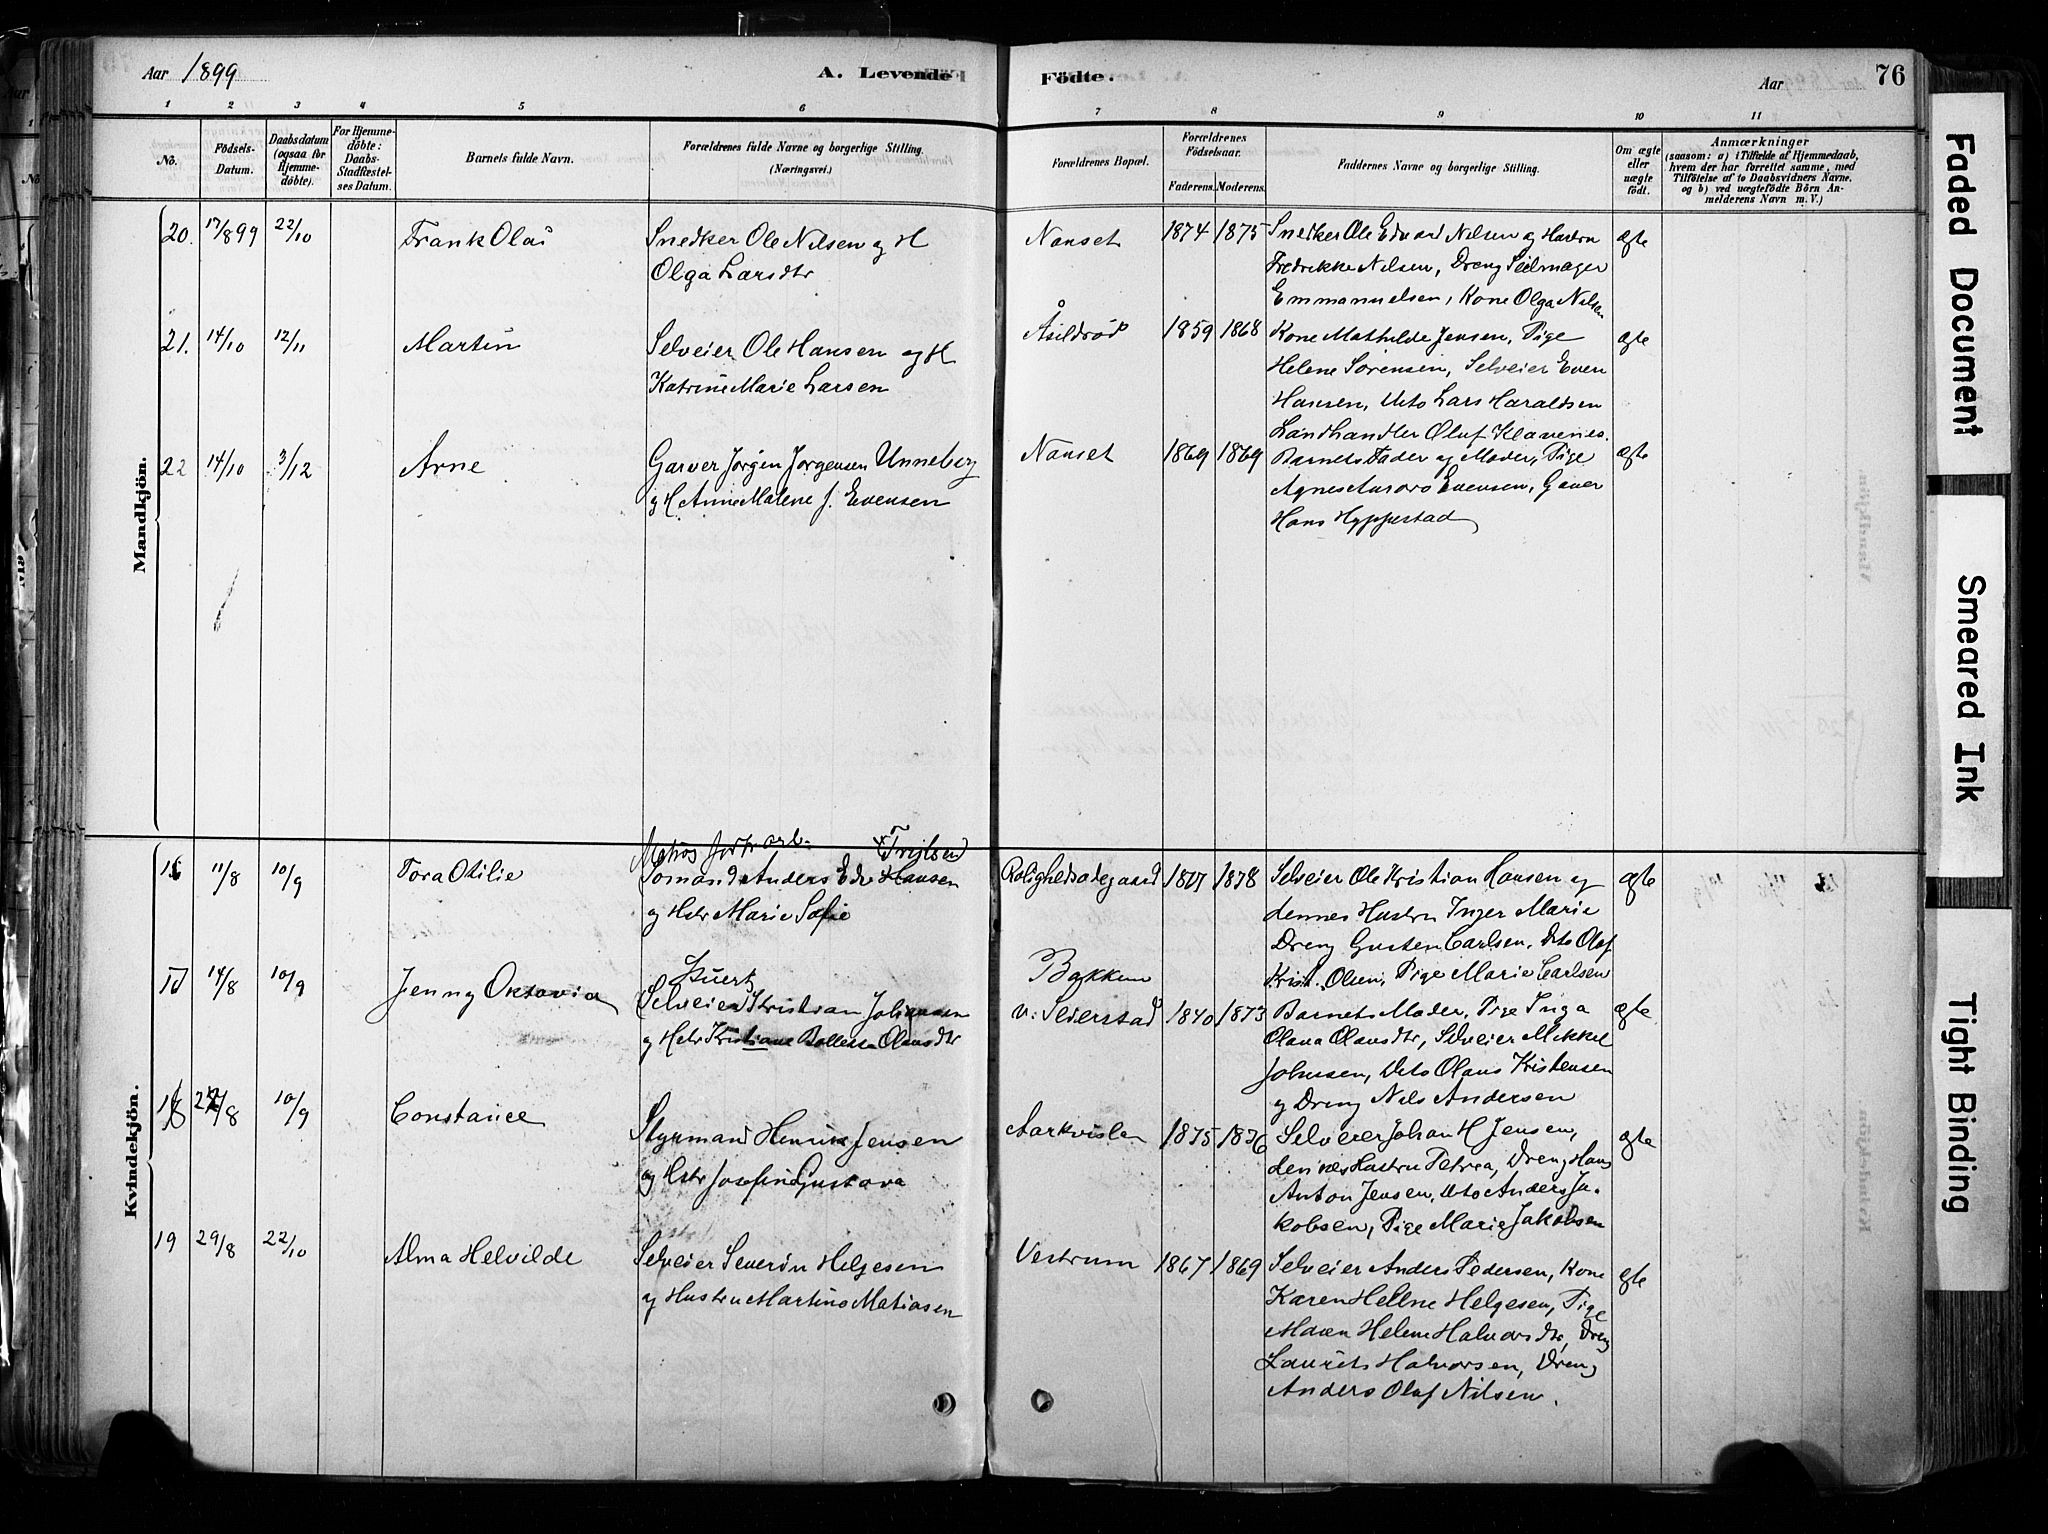 Aar 1899
A. Levende Födte.
Aar
76
1 2 3 4 5 6 7 8 9 10 11
No.
Födsels-Datum.
Daabsdatum (ogsaa for Hjemmedöbte).
For Hjemmedöbte: Daabs-Stadfæstelses Datum.
Barnets fulde Navn.
Forældrenes fulde Navne og borgerlige Stilling. (Næringsvei.)
Forældrenes Bopæl.
Forældrenes Födselsaar.
Faderens. Moderens.
Faddernes Navne og borgerlige Stilling.
Om ægte eller uægte födt.
Anmærkninger
(saasom: a) i Tilfælde af Hjemmedaab, hvem der har forrettet samme, med Tilföielse af to Daabsvidners Navne, og b) ved uægtefödte Börn Anmelderens Navn m. V.)
Mandkjön.
20. 17/8 99 22/10 Frank Olai Snedker Ole Nilsen og H Nanset 1874 1875 Snedker Ole Edvard Nilsen og Hustru ægte
Olga Larsdtr Fredrikke Nilsen, Dreng Seilmager
Emmanuelsen, Kone Olga Nilsen
21. 14/10 12/11 Martin Selveier Ole Hansen og H Åsildrød 1859 1868 Kone Mathilde Jensen, Pige ægte
Katrine Marie Larsen Helene Sørensen, Selveier Even
Hansen, Dito Lars Haraldsen
Landhandler Oluf Klavenes.
22 14/10 3/12 Arne Garver Jørgen Jørgensen Unneberg Nanset 1869 1869 Barnets Fader og Moder, Pige ægte
og H Anne Malene f. Evensen Agnes Aurora Evensen, Gaver
Hans Hyppestad
Kvindekjön.
Matros forh. arb. (Trijlsen)
16 11/8 10/9 Tora Otilie Sømand Anders Edv Hansen Rolighedsødegaard 1878 Selveier Ole Kristian Hansen og ægte
og Hstr Marie Sofie dennes Hustru Inger Marie
Dreng Gusten Carlsen, Dito Olaf
Krist. Olsen, Pige Marie Carlsen
17 14/8 10/9 Jenny Oktavia Bakken
Selveier Kristian Johansen v: Seierstad 1840 1873 Barnets Moder, Pige Inga ægte
og Hstr Kristiane Olausdtr Olava Olausdtr, Selveier Mikkel
Johnsen, Dito Olaus Kristensen
og Dreng Nils Andersen
18 /8 10/9 Constance Styrmand Henrik Jensen 1875 1876 Selveier Johan H Jensen, ægte
og Hstr Josefine Gustava dennes Hustru Petrea, Dreng Hans
Anton Jensen, Dito Anders Ja-
kobsen, Pige Marie Jakobsen
19 29/8 22/10 Alma Helvilde Selveier Severin Helgesen Vestrum 1867 1869 Selveier Anders Pedersen, Kone ægte
og Hustru Martine Matiasen Karen Hellne Helgesen, Pige
Maren Helene Halvorsdtr, Dreng
Laurits Halvorsen, Dreng
Anders Olaf Nilsen.
Faded Document
Smeared Ink
Tight Binding